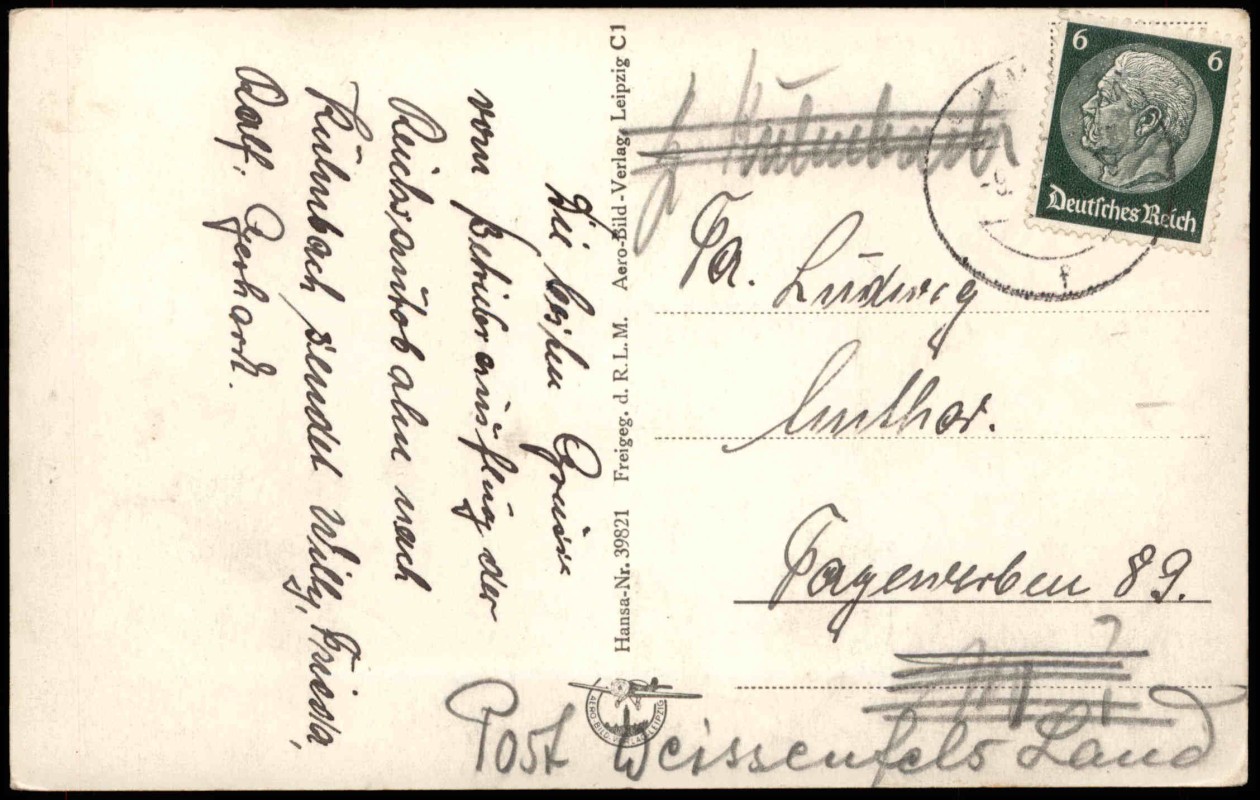 Die besten Grüsse
vom Betriebsausflug der
Reichsautobahn nach
Kulmbach sendet Willy, Frieda,
Ralf, Gerhard.
Hansa-Nr. 39821 Freigeg. d. R.L.M. Aero-Bild-Verlag, Leipzig C1
6 6
Deutsches Reich
Kulmbach
Fa. Ludwig
Luther.
Tagewerben 89.
Post Weissenfels Land
AERO-BILD-VERLAG LEIPZIG